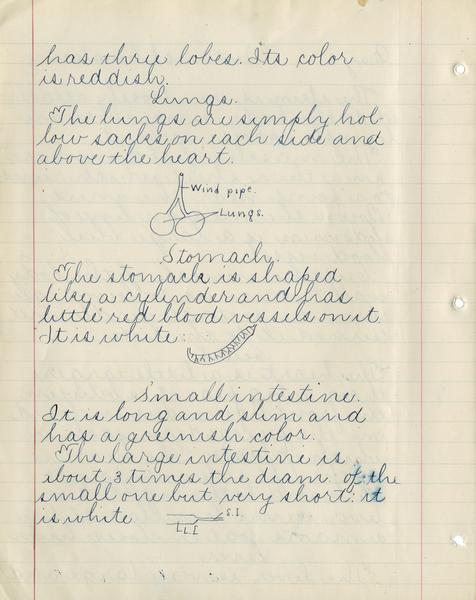 has three lobes. Its color
is reddish.
Lungs.
The lungs are simply hol-
low sacks on each side and
above the heart.
Wind pipe.
Lungs.
Stomach.
The stomach is shaped
like a cylinder and has
little red blood vessels on it.
It is white:
Small intestine.
It is long and slim and
has a greenish color.
The large intestine is
about 3 times the diam of the
small one but very short: it
is white.
S.I.
L.I